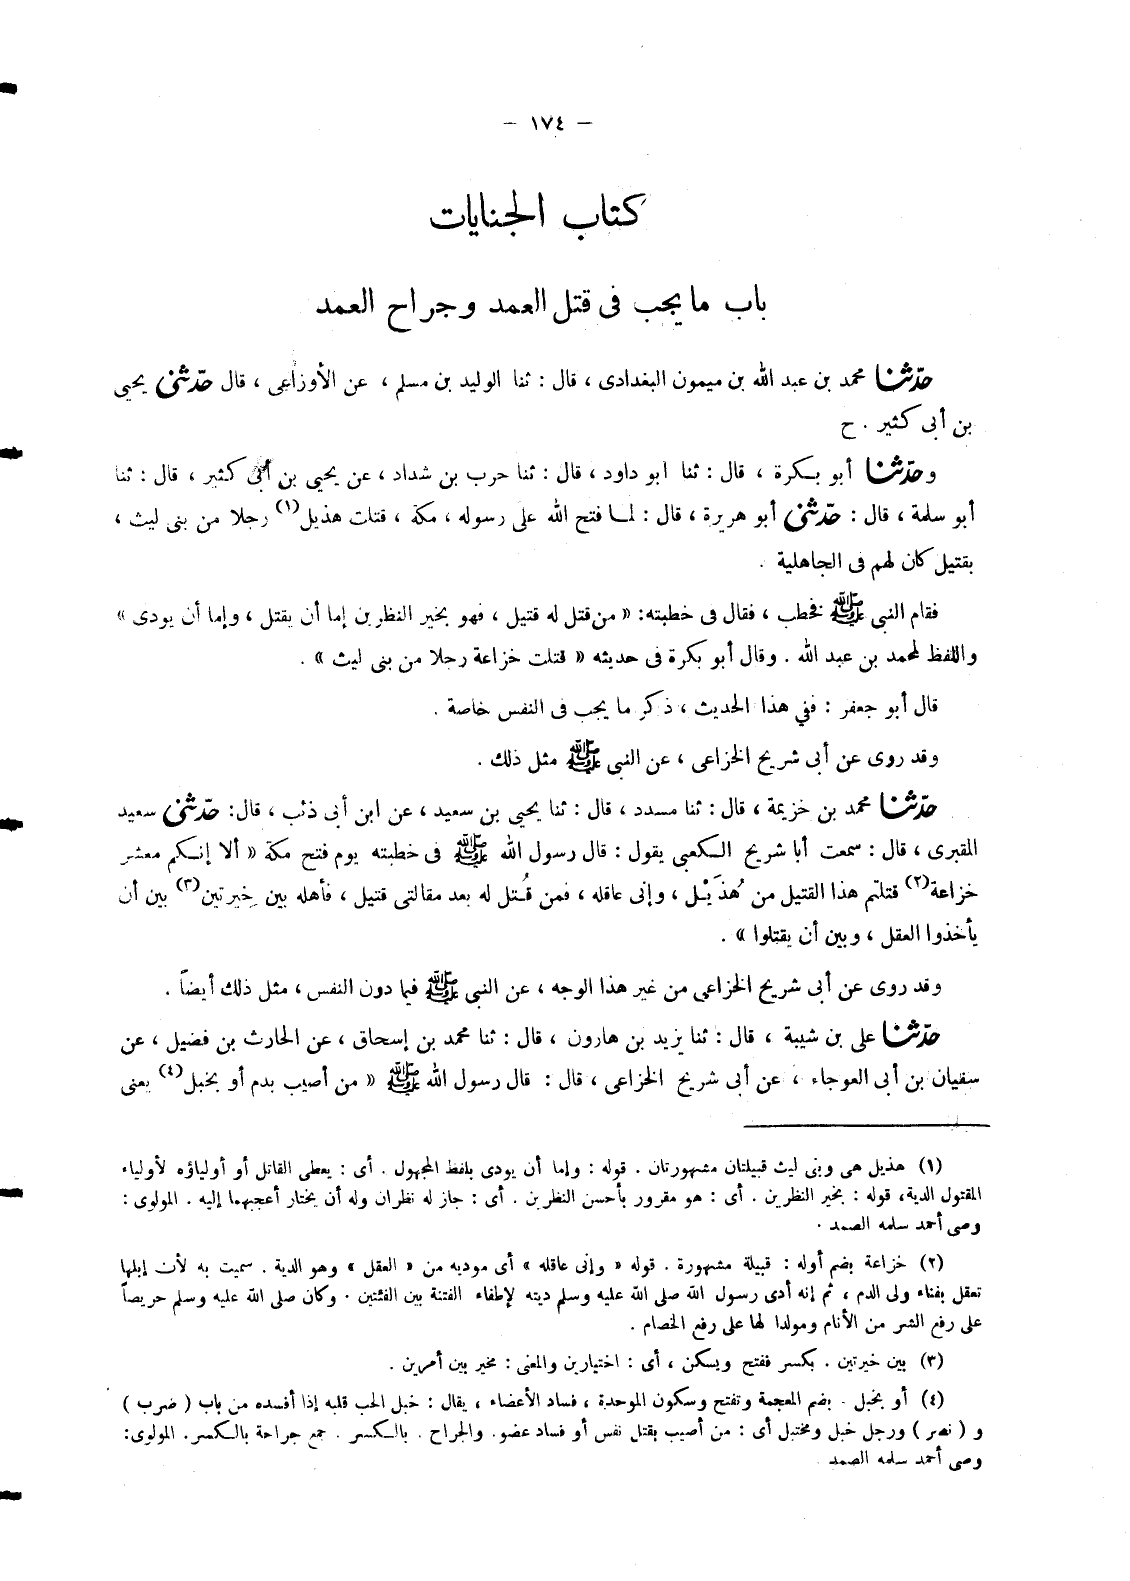 — ١٧٤ —
كتاب الجنايات
باب ما يجب فى قتل العمد وجراح العمد
حدّثنا محمد بن عبد الله بن ميمون البغدادى ، قال : ثنا الوليد بن مسلم ، عن الأوزاعى ، قال حدّثنى يحيى
بن أبى كثير . ح
وحدّثنا أبو بكرة ، قال : ثنا ابو داود ، قال : ثنا حرب بن شداد ، عن يحيى بن أبى كثير ، قال : ثنا
أبو سلمة ، قال : حدّثنى أبو هريرة ، قال : لما فتح الله على رسوله ، مكة ، قتلت هذيل(١) رجلا من بنى ليث ،
بقتيل كان لهم فى الجاهلية .
فقام النبى ﷺ فخطب ، فقال فى خطبته: « من قتل له قتيل ، فهو بخير النظرين إما أن يقتل ، وإما أن يودى »
واللفظ لمحمد بن عبد الله . وقال أبو بكرة فى حديثه « قتلت خزاعة رجلا من بنى ليث » .
قال أبو جعفر : ففى هذا الحديث ، ذكر ما يجب فى النفس خاصة .
وقد روى عن أبى شريح الخزاعى ، عن النبى ﷺ مثل ذلك .
حدّثنا محمد بن خزيمة ، قال : ثنا مسدد ، قال : ثنا يحيى بن سعيد ، عن ابن أبى ذئب ، قال: حدّثنى سعيد
المقبرى ، قال : سمعت أبا شريح الكعبى يقول : قال رسول الله ﷺ فى خطبته يوم فتح مكة « ألا إنكم معشر
خزاعة(٢) قتلتم هذا القتيل من هُذَيْل ، وإنى عاقله ، فمن قُتل له بعد مقالتى قتيل ، فأهله بين خِيرتين(٣) بين أن
يأخذوا العقل ، وبين أن يقتلوا » .
وقد روى عن أبى شريح الخزاعى من غير هذا الوجه ، عن النبى ﷺ فيما دون النفس ، مثل ذلك أيضاً .
حدّثنا على بن شيبة ، قال : ثنا يزيد بن هارون ، قال : ثنا محمد بن إسحاق ، عن الحارث بن فضيل ، عن
سفيان بن أبى العوجاء ، عن أبى شريح الخزاعى ، قال : قال رسول الله ﷺ « من أصيب بدم أو بخبل(٤) يعنى
(١) هذيل هى وبنى ليث قبيلتان مشهورتان . قوله : وإما أن يودى بلفظ المجهول . أى : يعطى القاتل أو أولياؤه لأولياء
المقتول الدية، قوله : بخير النظرين . أى : هو مقرور بأحسن النظرين . أى : جاز له نظران وله أن يختار أعجبهما إليه . المولوى :
وصى أحمد سلمه الصمد .
(٢) خزاعة بضم أوله : قبيلة مشهورة . قوله « وإنى عاقله » أى موديه من « العقل » وهو الدية . سميت به لأن إبلها
تعقل بفناء ولى الدم ، ثم إنه أدى رسول الله صلى الله عليه وسلم ديته لإطفاء الفتنة بين الفئتين . وكان صلى الله عليه وسلم حريصاً
على رفع الشر من الأنام ومولدا لها على رفع الخصام .
(٣) بين خيرتين . بكسر ففتح ويسكن ، أى : اختيارين والمعنى : مخير بين أمرين .
(٤) أو بخبل . بضم المعجمة وتفتح وسكون الموحدة ، فساد الأعضاء ، يقال : خبل الحب قلبه إذا أفسده من باب ( ضرب )
و ( نصر ) ورجل خبل ومختبل أى : من أصيب بقتل نفس أو فساد عضو. والجراح . بالكسر . جمع جراحة بالكسر. المولوى:
وصى أحمد سلمه الصمد .